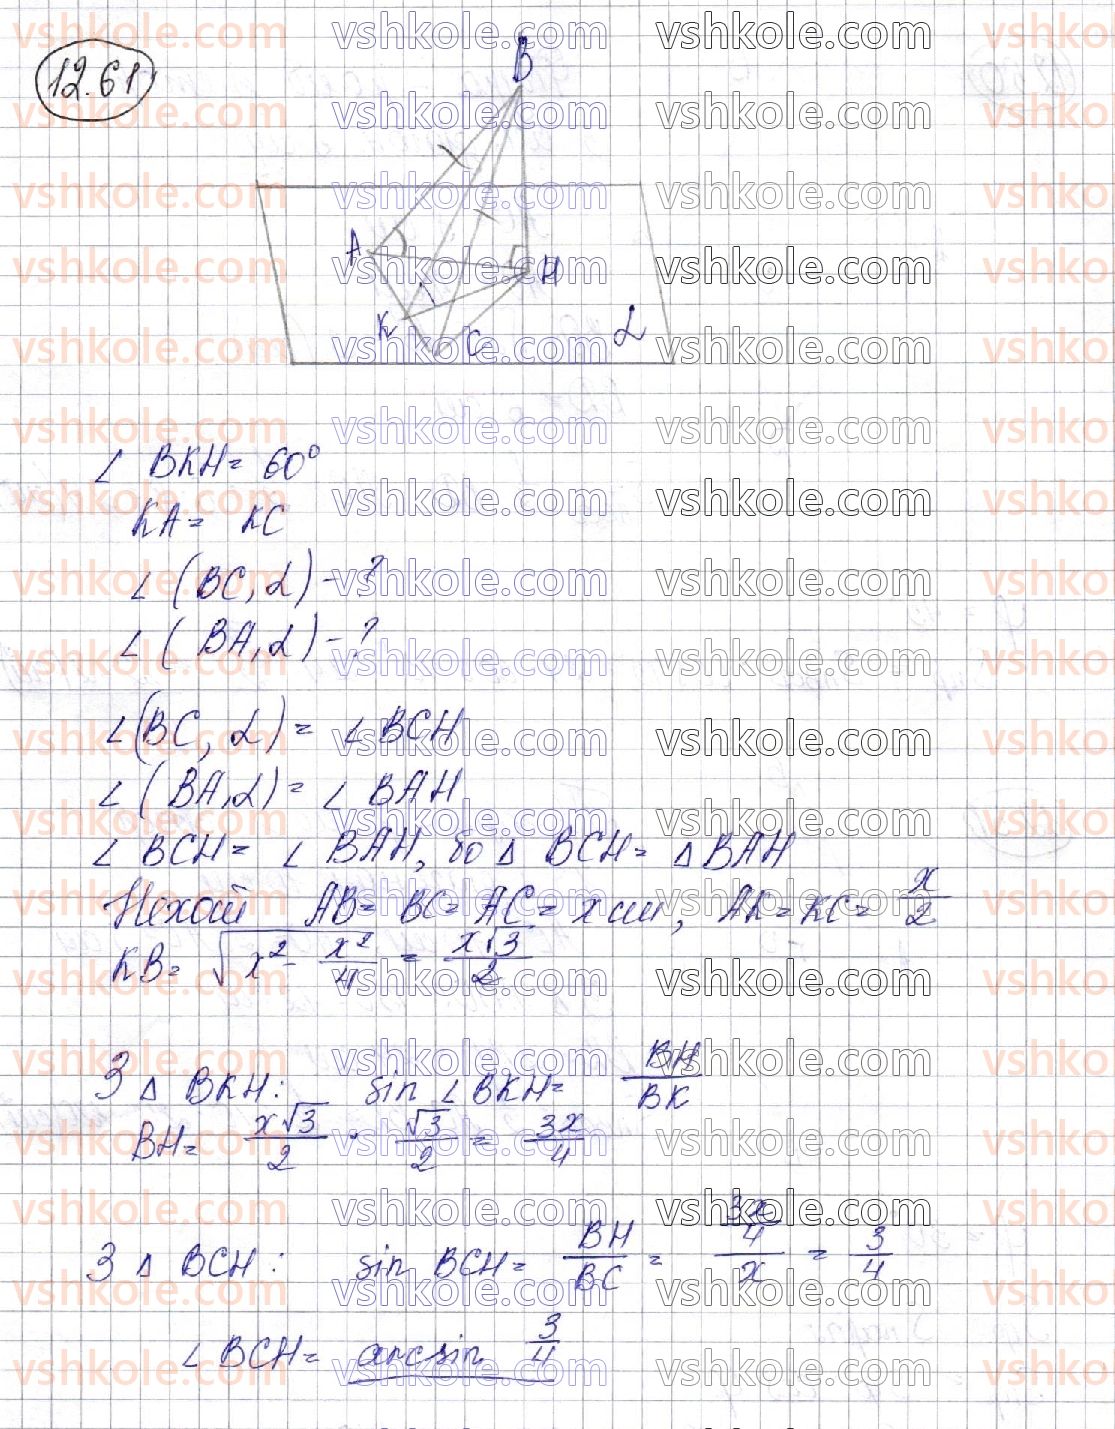 12.61
B
A
H
K
C
α
∠ BKH = 60°
KA = KC
∠ (BC, α) - ?
∠ (BA, α) - ?
∠ (BC, α) = ∠ BCH
∠ (BA, α) = ∠ BAH
∠ BCH = ∠ BAH, бо Δ BCH = Δ BAH
Нехай AB = BC = AC = x см, AK = KC = x/2
KB = √(x² - x²/4) = x√3/2
З Δ BKH: sin ∠ BKH = BH/BK
BH = x√3/2 · √3/2 = 3x/4
З Δ BCH: sin BCH = BH/BC = (3x/4)/x = 3/4
∠ BCH = arcsin 3/4
vshkole.com